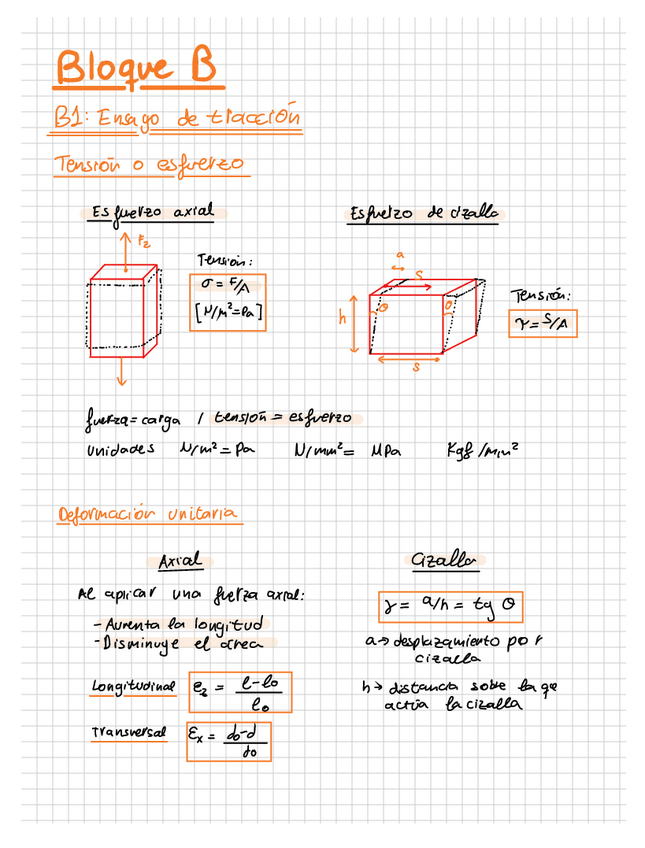 Bloque B
B1: Ensayo de tracción
Tensión o esfuerzo
Esfuerzo axial
F₂
Tensión:
σ = F/A
[N/m² = Pa]
Esfuerzo de cizalla
a
S
θ
θ
h
S
Tensión:
γ = S/A
fuerza = carga / tensión = esfuerzo
unidades N/m² = Pa N/mm² = MPa Kgf/mm²
Deformación unitaria
Axial
Al aplicar una fuerza axial:
- Aumenta la longitud
- Disminuye el area
Longitudinal ε₂ = l-l₀ / l₀
Transversal εₓ = d₀-d / d₀
Cizalla
γ = a/h = tg θ
a → desplazamiento por
cizalla
h → distancia sobre la que
actúa la cizalla